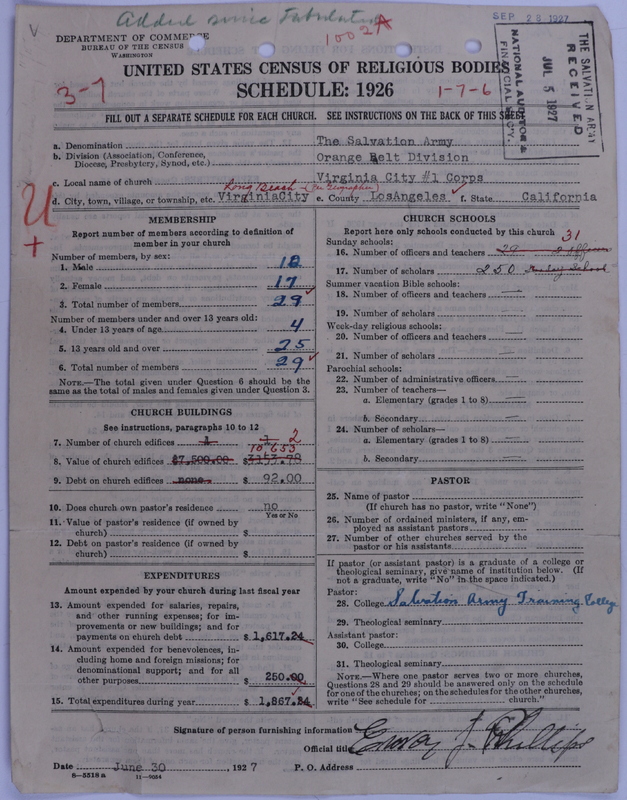 Added since Tabulation
DEPARTMENT OF COMMERCE
BUREAU OF THE CENSUS
WASHINGTON
1002A
SEP 28 1927
UNITED STATES CENSUS OF RELIGIOUS BODIES
SCHEDULE: 1926
3-7
1-7-6
THE SALVATION ARMY
RECEIVED
JUL 5 1927
NATIONAL AUDITOR &
FINANCIAL SECY.
FILL OUT A SEPARATE SCHEDULE FOR EACH CHURCH. SEE INSTRUCTIONS ON THE BACK OF THIS SHEET
a. Denomination The Salvation Army
b. Division (Association, Conference, Diocese, Presbytery, Synod, etc.) Orange Belt Division
c. Local name of church Virginia City #1 Corps
Long Beach (Per Geographer)
d. City, town, village, or township, etc. VirginiaCity e. County LosAngeles f. State California
MEMBERSHIP
Report number of members according to definition of
member in your church
Number of members, by sex:
1. Male 12
2. Female 17
3. Total number of members 29
Number of members under and over 13 years old:
4. Under 13 years of age 4
5. 13 years old and over 25
6. Total number of members 29
NOTE.—The total given under Question 6 should be the
same as the total of males and females given under Question 3.
CHURCH BUILDINGS
See instructions, paragraphs 10 to 12
7. Number of church edifices 1 1 2
10 653
8. Value of church edifices $7,500.00 $3153.78
9. Debt on church edifices none $ 92.00
10. Does church own pastor's residence no
Yes or No
11. Value of pastor's residence (if owned by
church) $
12. Debt on pastor's residence (if owned by
church) $
EXPENDITURES
Amount expended by your church during last fiscal year
13. Amount expended for salaries, repairs,
and other running expenses; for im-
provements or new buildings; and for
payments on church debt $1,617.24
14. Amount expended for benevolences, in-
cluding home and foreign missions; for
denominational support; and for all
other purposes $ 250.00
15. Total expenditures during year $ 1,867.24
CHURCH SCHOOLS
Report here only schools conducted by this church
Sunday schools: 31
16. Number of officers and teachers 29 2 officers
17. Number of scholars 250 Sunday School
Summer vacation Bible schools:
18. Number of officers and teachers
19. Number of scholars
Week-day religious schools:
20. Number of officers and teachers
21. Number of scholars
Parochial schools:
22. Number of administrative officers
23. Number of teachers—
a. Elementary (grades 1 to 8)
b. Secondary
24. Number of scholars—
a. Elementary (grades 1 to 8)
b. Secondary
PASTOR
25. Name of pastor
(If church has no pastor, write "None")
26. Number of ordained ministers, if any, em-
ployed as assistant pastors
27. Number of other churches served by the
pastor or his assistants
If pastor (or assistant pastor) is a graduate of a college or
theological seminary, give name of institution below. (If
not a graduate, write "No" in the space indicated.)
Pastor:
28. College Salvation Army Training College
29. Theological seminary
Assistant pastor:
30. College
31. Theological seminary
NOTE.—Where one pastor serves two or more churches,
Questions 28 and 29 should be answered only on the schedule
for one of the churches; on the schedules for the other churches,
write "See schedule for church."
Signature of person furnishing information
Official title
Date June 30 , 1927 P. O. Address
8—5518 a 11—9034